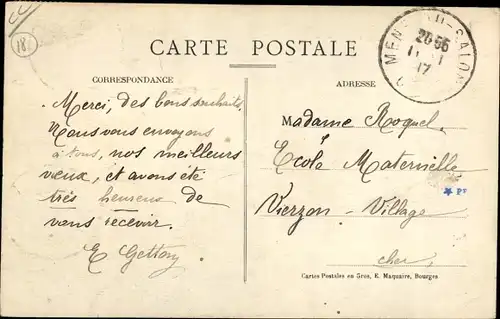 18
CARTE POSTALE
MENETOU-SALON
11 - 1
17
CORRESPONDANCE
ADRESSE
Merci, des bons souhaits.
Nous vous envoyons
à tous, nos meilleurs
vœux, et avons été
très heureux de
vous recevoir.
Madame Roquel
École Maternelle
Vierzon-Village
cher
PF
Cartes Postales en Gros, E. Maquaire, Bourges